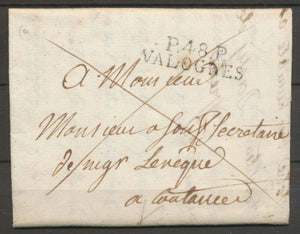 P.48.P.
VALOGNES
A Monsieur
Monsieur Secretaire
de mgr Leveque
a coutance